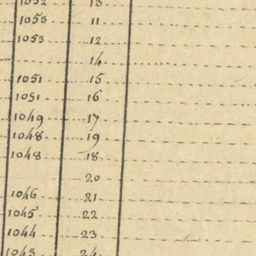 1052 13
1053 11
1053 12
14
1051 15
1051 16
1049 17
1048 19
1048 18
20
1046 21
1045 22
1044 23
1043 24